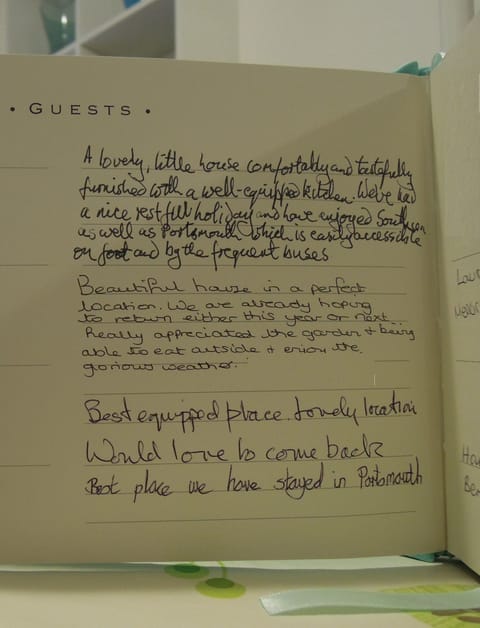 • GUESTS •
A lovely, little house comfortably and tastefully
furnished with a well-equipped kitchen. We've had
a nice restfull holiday and have enjoyed Southsea
as well as Portsmouth which is easily accessible
on foot and by the frequent buses
Beautiful house in a perfect
location. We are already hoping
to return either this year or next
Really appreciated the garden + being
able to eat outside + enjoy the
glorious weather.
Best equipped place. Lovely location
Would love to come back
Best place we have stayed in Portsmouth